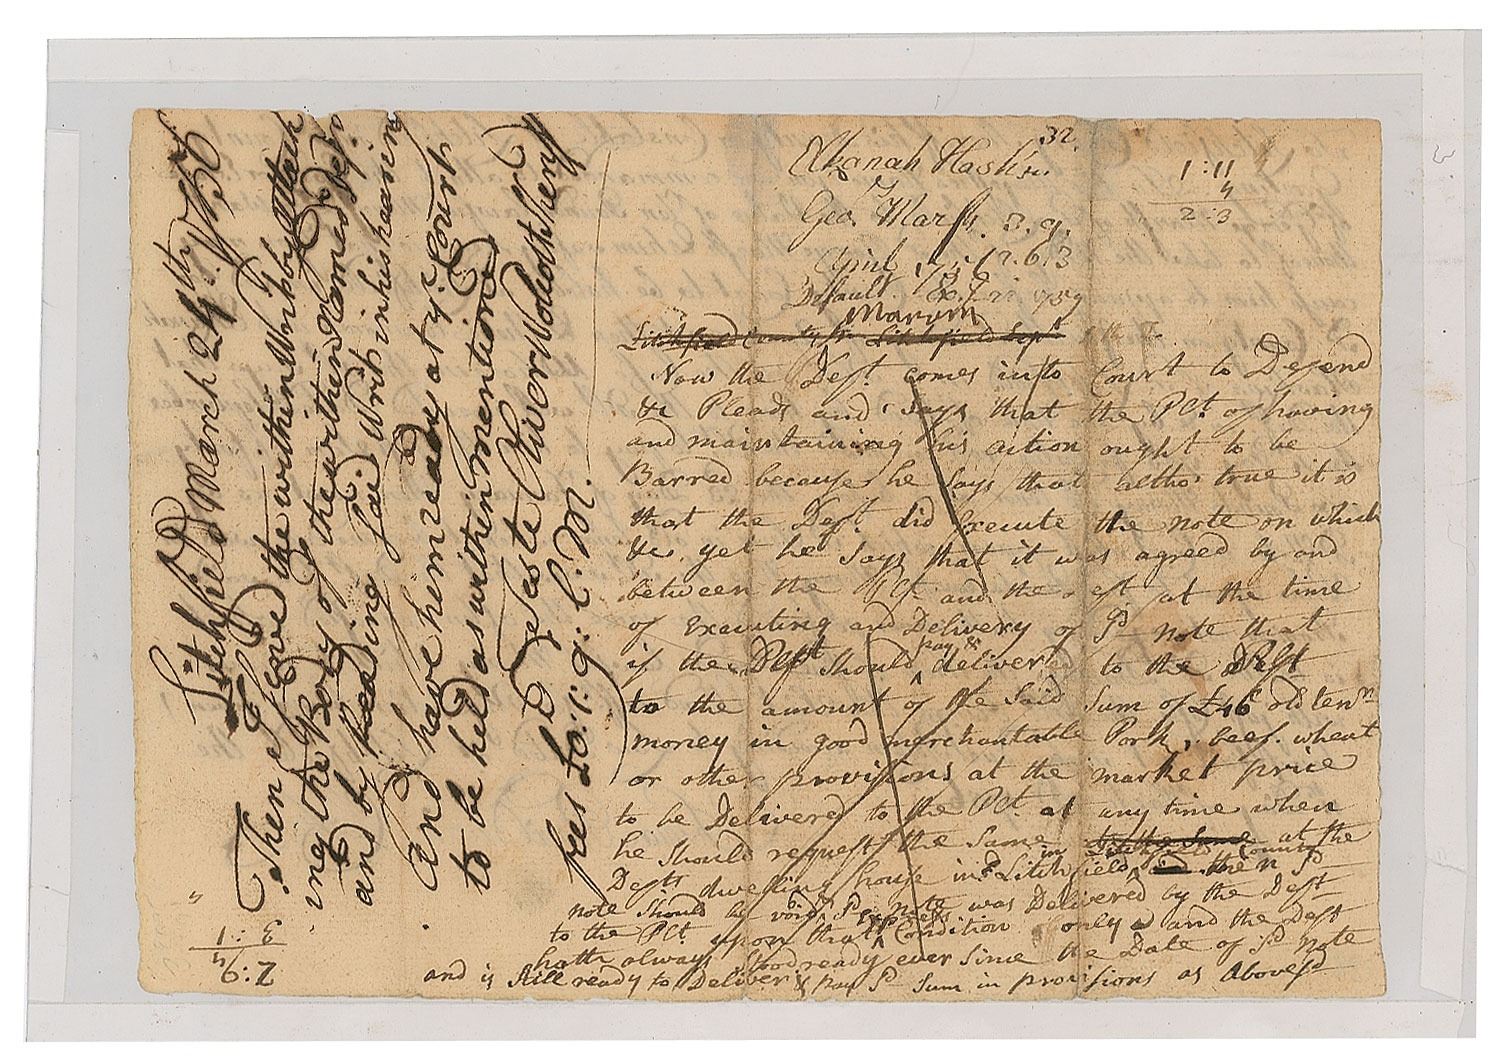 32.
Elkanah Hask'n.
Geo. Marsh. 3. 9.
April 2. 6. 3
Default. Ex.
Marvin
Litchfield County ss Litchfield Sept
Now the Deft. comes into Court to Defend
&c Pleads and says that the Plt. of having
and maintaining his action ought to be
Barred because he says that altho' true it is
that the Deft. did Execute the note on which
&c. yet he says that it was agreed by and
between the Plt and the Deft at the time
of Executing and Delivery of sd note that
if the Deft should pay & deliver to the Deft
to the amount of the said sum of £46 old tenr
money in good merchantable Pork, beef. wheat
or other provisions at the market price
to be Delivered to the Plt. at any time when
he should request the same to the same at the
Defts dwelling house in sd Litchfield in County then sd
note should be void, sd note was Delivered by the Deft
to the Plt. upon that express Condition only and the Deft
hath always stood ready ever since the Date of sd note
and is still ready to Deliver & pay sd sum in provisions as Abovesd
1:11
4
2:3
Litchfield March 24th
Then I Served the within Writ by Attach
ing the Body of the within Named Deft
and by Reading said Writ in his hearing
and have him ready at ye Court
to be held as within mentioned
Teste Oliver Wolcott Sheriff
fees £0:1:9: L. M.
7:9
4
3:1